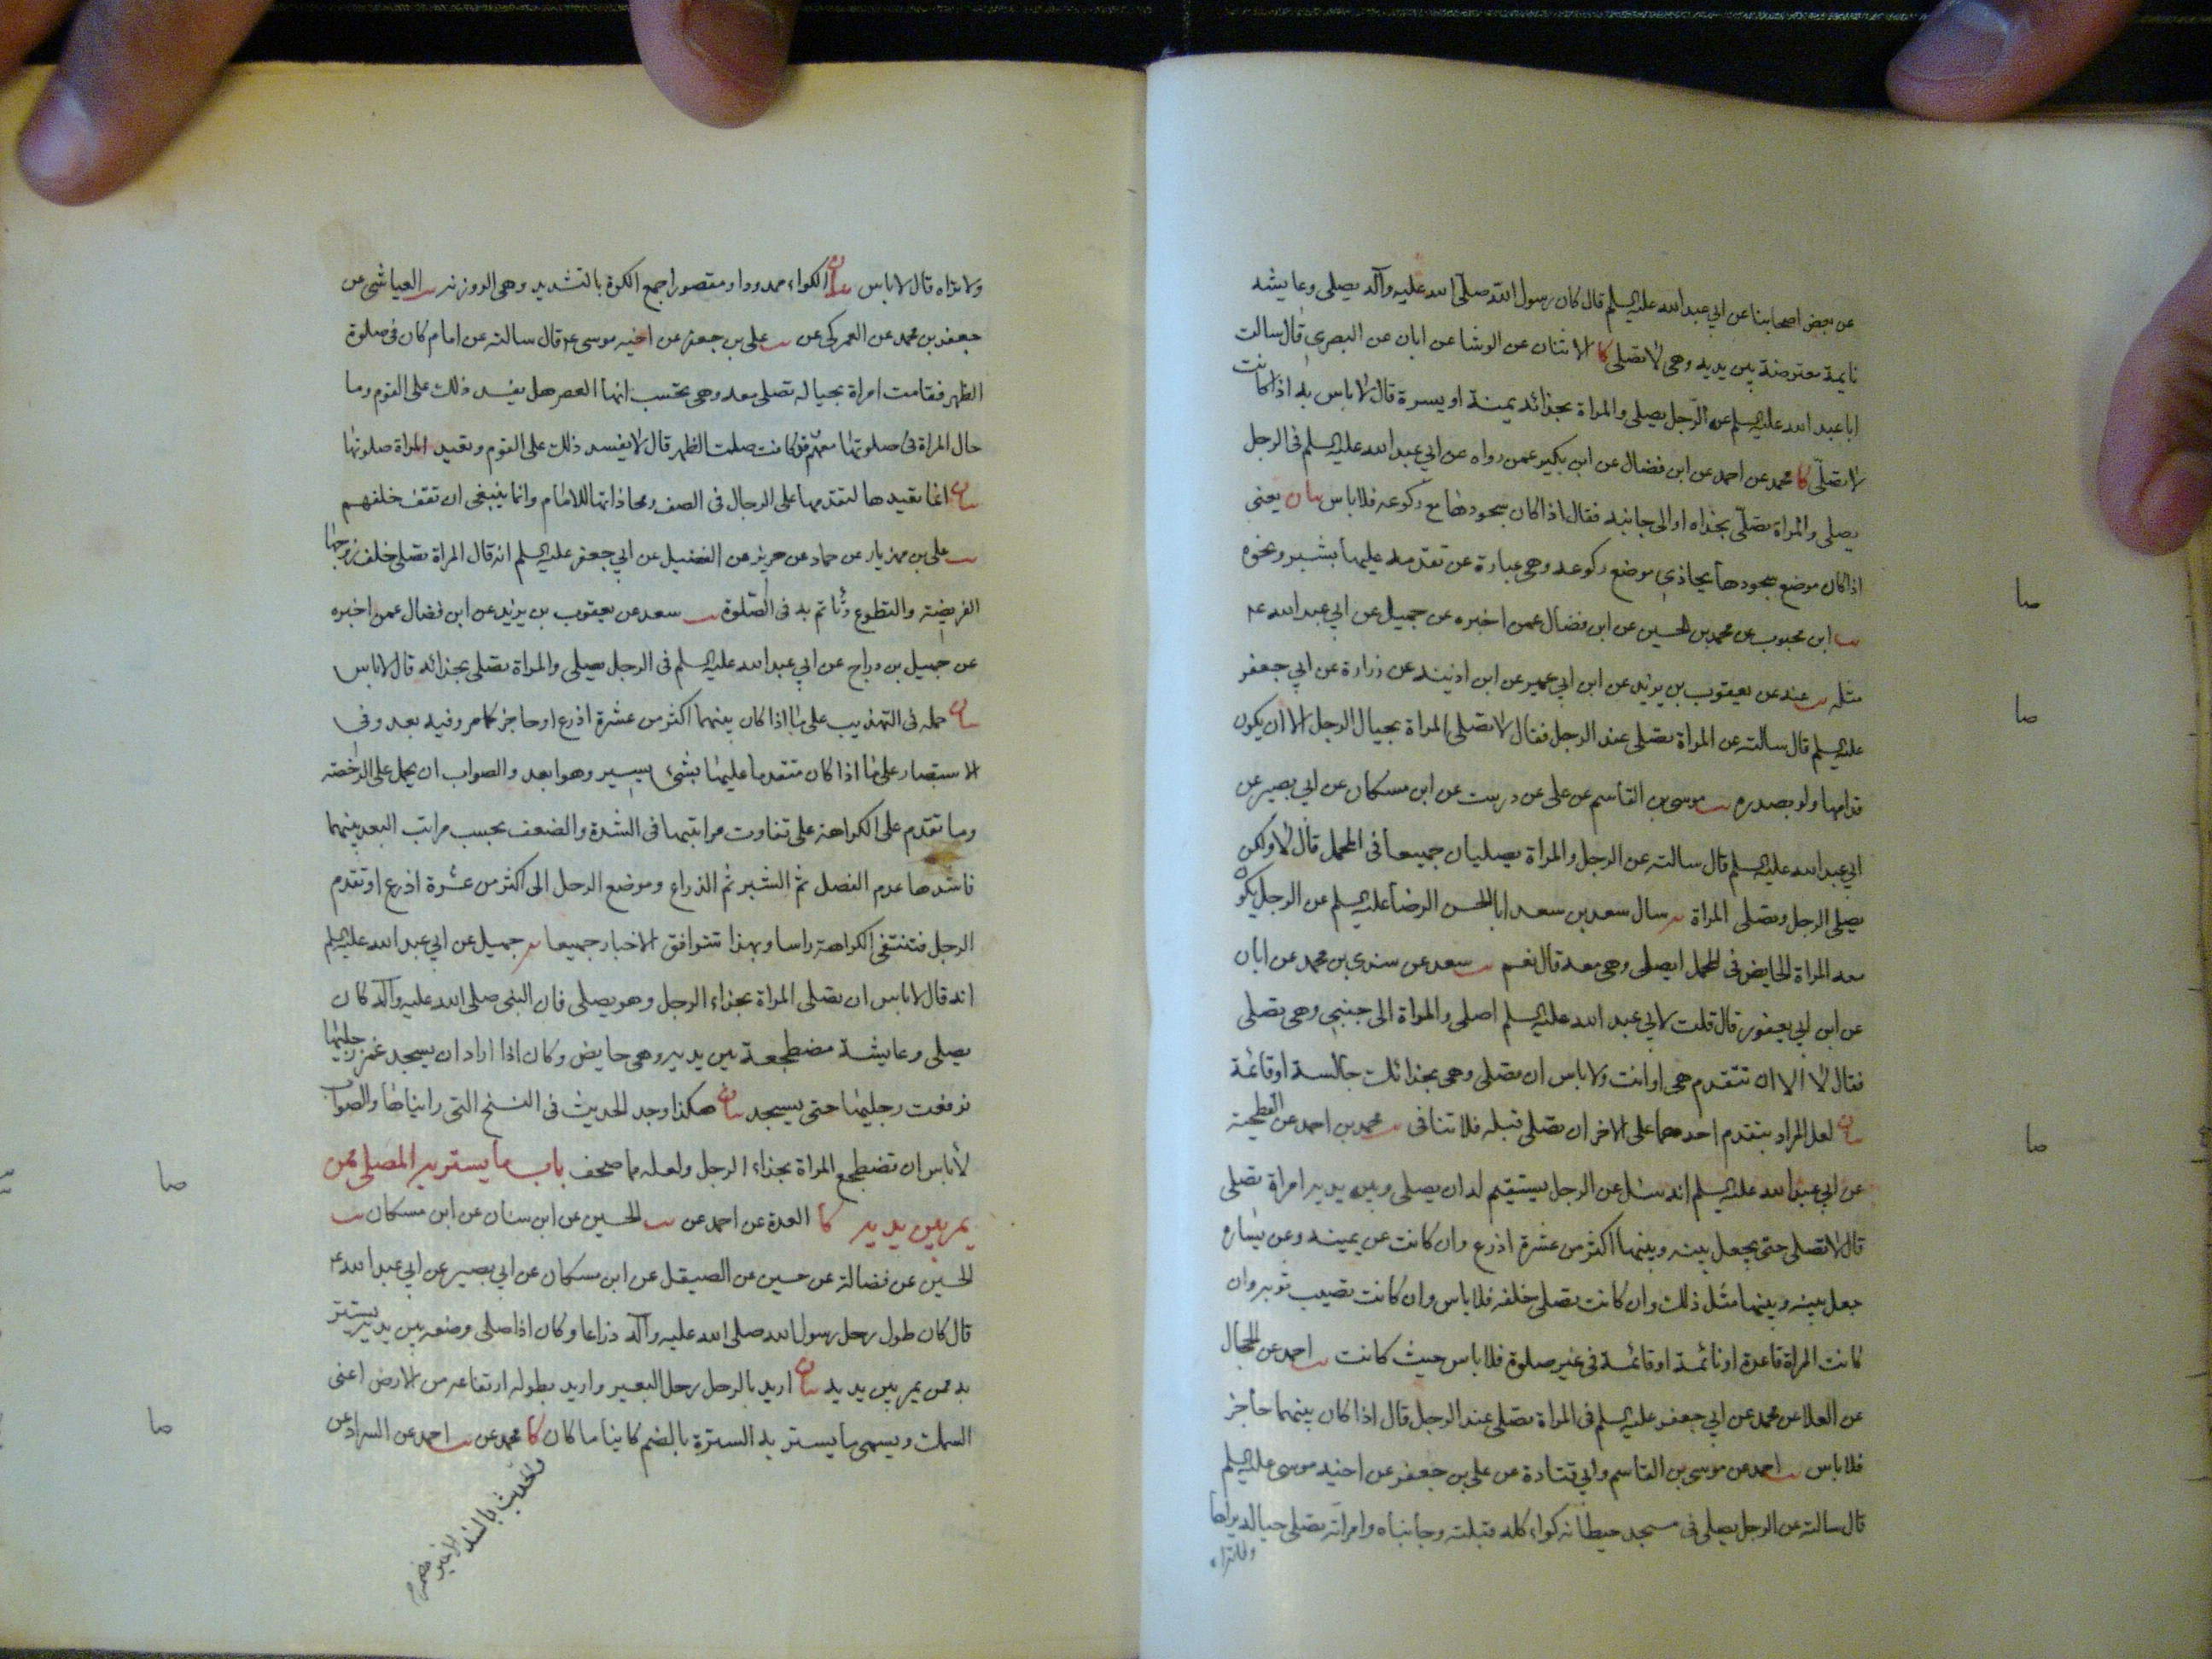 عن بعض اصحابنا عن ابي عبد الله عليه السلم قال كان رسول الله صلى الله عليه وآله يصلي وعايشه
نايمة معترضة بين يديه وهي لا تصلي كا الاثنان عن الوشا عن ابان عن البصري قال سالت
ابا عبد الله عليه السلم عن الرجل يصلي والمراة بحذائه يمنة او يسرة قال لا باس به اذا كانت
لا تصلي كا محمد عن احمد عن ابن فضال عن ابن بكير عمن رواه عن ابي عبد الله عليه السلم في الرجل
يصلي والمراة تصلي بحذاه او الى جانبه فقال اذا كان سجودها مع ركوعه فلا باس بيان يعني
اذا كان موضع سجودها يحاذي موضع ركوعه وهي عبارة عن تقدمه عليها بشبر ونحوه
يب ابن محبوب عن محمد بن الحسين عن ابن فضال عمن اخبره عن جميل عن ابي عبد الله ع
مثله يب عنه عن يعقوب بن يزيد عن ابن ابي عمير عن ابن اذينه عن زرارة عن ابي جعفر
عليه السلم قال سالته عن المراة تصلي عند الرجل فقال لا تصلي المراة بحيال الرجل الا ان يكون
قدامها ولو بصدره يب موسى بن القاسم عن علي عن درست عن ابن مسكان عن ابي بصير عن
ابي عبد الله عليه السلم قال سالته عن الرجل والمراة يصليان جميعا في المحمل قال لا ولكن
يصلي الرجل وتصلي المراة يه سال سعد بن سعد ابا الحسن الرضا عليه السلم عن الرجل يكون
معه المراة الحايض في المحمل ايصلي وهي معه قال نعم يب سعد عن سندي بن محمد عن ابان
عن ابن ابي يعفور قال قلت لابي عبد الله عليه السلم اصلي والمراة الى جنبي وهي تصلي
فقال لا الا ان تتقدم هي او انت ولا باس ان تصلي وهي بحذائك جالسة او قائمة
بيان لعل المراد بتقدم احدهما على الاخر ان تصلي قبله فلا تنافى يب محمد بن احمد عن الفطحية
عن ابي عبد الله عليه السلم انه سئل عن الرجل يستقيم له ان يصلي وبين يديه امراة تصلي
قال لا تصلي حتى يجعل بينه وبينها اكثر من عشرة اذرع وان كانت عن يمينه وعن يساره
جعل بينه وبينها مثل ذلك وان كانت تصلي خلفه فلا باس وان كانت تصيب ثوبه وان
كانت المراة قاعدة او نائمة او قائمة في غير صلوة فلا باس حيث كانت يب احمد عن الحجال
عن العلا عن محمد عن ابي جعفر عليه السلم في المراة تصلي عند الرجل قال اذا كان بينهما حاجز
فلا باس يب احمد عن موسى بن القاسم وابي قتادة عن علي بن جعفر عن اخيه موسى عليه السلم
قال سالته عن الرجل يصلي في مسجد حيطانه كواء كله قبلته وجانباه وامراته تصلي حياله يراها
ولا تراه
صا
صا
صا
ولا تراه قال لا باس بيان الكواء ممدودا ومقصورا جمع الكوة بالتشديد وهي الروزنه يب العياشي عن
جعفر بن محمد عن العمركي عن يب علي بن جعفر عن اخيه موسى ع قال سالته عن امام كان في صلوة
الظهر فقامت امراة بحياله تصلي معه وهي تحتسب انها العصر هل يفسد ذلك على القوم وما
حال المراة في صلوتها معهم وقد كانت صلت الظهر قال لا يفسد ذلك على القوم وتعيد المراة صلوتها
بيان انما تعيدها لتقدمها على الرجال في الصف ومحاذاتها للامام وانما ينبغي ان تقف خلفهم
يب علي بن مهزيار عن حماد عن حريز عن الفضيل عن ابي جعفر عليه السلم انه قال المراة تصلي خلف زوجها
الفريضة والتطوع وتاتم به في الصلوة يب سعد عن يعقوب بن يزيد عن ابن فضال عمن اخبره
عن جميل بن دراج عن ابي عبد الله عليه السلم في الرجل يصلي والمراة تصلي بحذائه قال لا باس
بيان حمله في التهذيب على ما اذا كان بينهما اكثر من عشرة اذرع او حاجز كما مر وفيه بعد وفي
الاستبصار على ما اذا كان متقدما عليها بشيء يسير وهو ابعد والصواب ان يحمل على الرخصة
وما تقدم على الكراهة على تفاوت مراتبها في الشدة والضعف بحسب مراتب البعد بينهما
فاشدها عدم الفصل ثم الشبر ثم الذراع وموضع الرحل الى اكثر من عشرة اذرع او تقدم
الرجل فتنتفي الكراهة راسا وبهذا تتوافق الاخبار جميعا يه جميل عن ابي عبد الله عليه السلم
انه قال لا باس ان تصلي المراة بحذاء الرجل وهو يصلي فان النبي صلى الله عليه وآله كان
يصلي وعايشة مضطجعة بين يديه وهي حايض وكان اذا اراد ان يسجد غمز رجليها
فرفعت رجليها حتى يسجد بيان هكذا وجد الحديث في النسخ التي رايناها والصواب
لا باس ان تضطجع المراة بحذاء الرجل ولعله مما صحف باب ما يستتر به المصلي ممن
يمر بين يديه كا العدة عن احمد عن يب الحسين عن ابن سنان عن ابن مسكان يب
الحسين عن فضالة عن حسين عن الصيقل عن ابن مسكان عن ابي بصير عن ابي عبد الله ع
قال كان طول رحل رسول الله صلى الله عليه وآله ذراعا وكان اذا صلى وضعه بين يديه يستتر
به ممن يمر بين يديه بيان اريد بالرحل رحل البعير واريد بطوله ارتفاعه من الارض اعني
السمك ويسمى ما يستتر به السترة بالضم كاينا ما كان كا محمد عن يب احمد عن السراد عن
والحديث بالسند الاخير مضمر
صا
صا